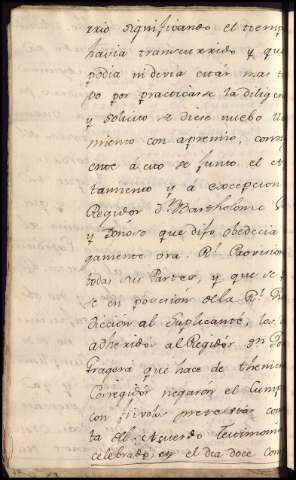 rrio significando el tiemp
havia transcurrido y que
podia ni devia estár mas t
po por practicarse la dilig
y solicito se diese nuebo
miento con apremio, con
ente á esto se junto el
tamiento y á excepcion
Regidor Dn. Bartholome
y Donoso que dijo obedecia
gamente dha. Rl. Provision
todas sus Partes, y que se
se en posesion de la Rl.
diccion al Suplicante, los
adheridos al Regidor Dn.
Fragera que hace de Theni
Corregidor negarón el Cump
con frivolos pretextos co
ta del Acuerdo testimonia
celebrado en el dia doce Con